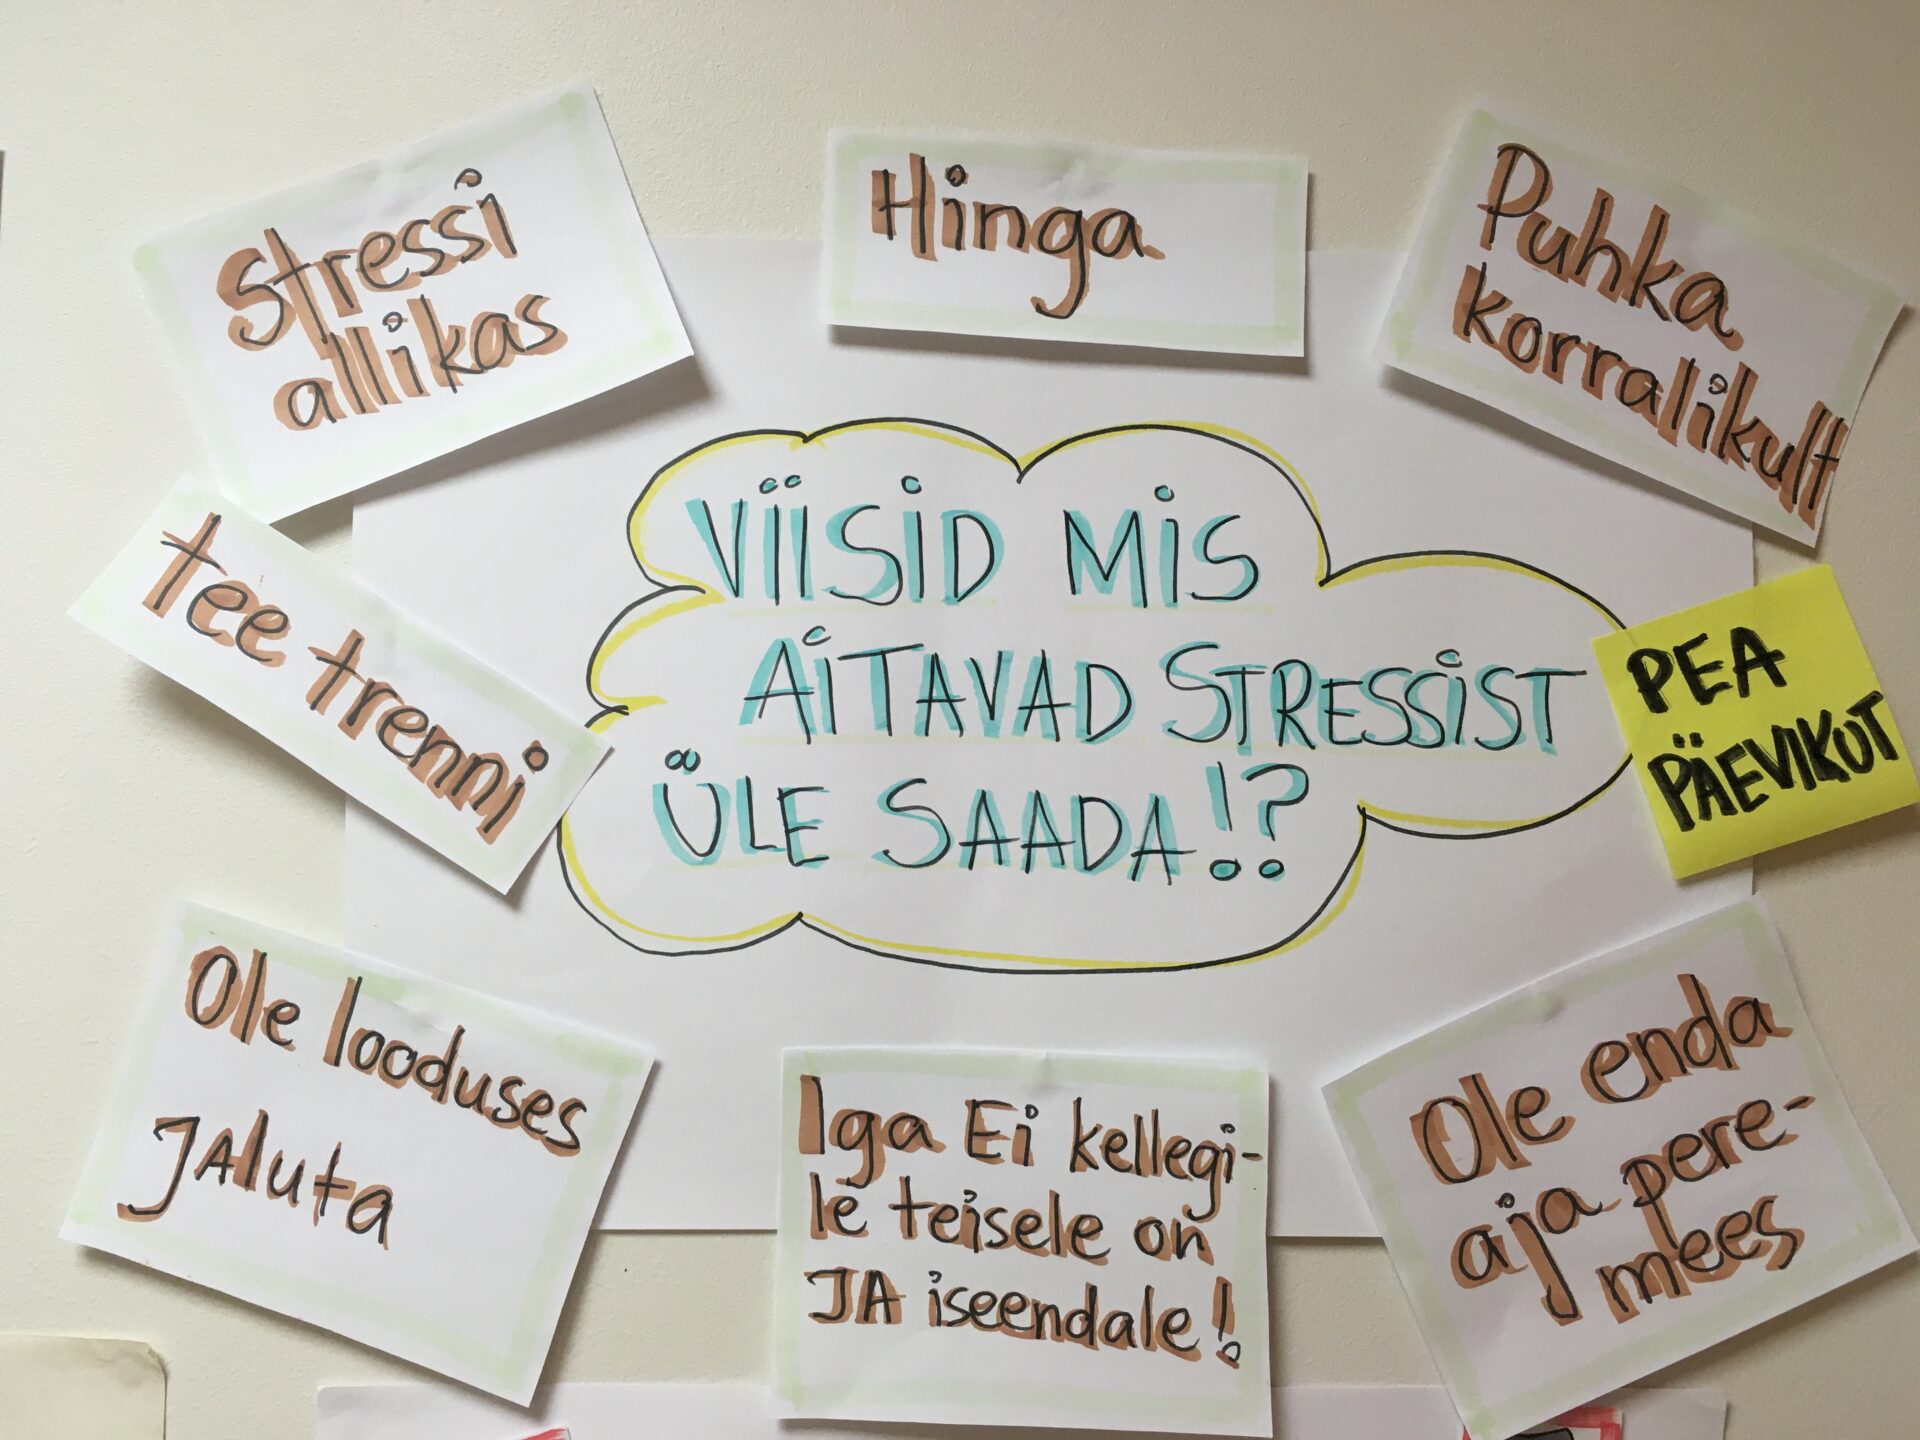 Stressi
allikas
Hinga
Puhka
korralikult
tee trenni
VIISID MIS
AITAVAD STRESSIST
ÜLE SAADA!?
PEA
PÄEVIKUT
Ole looduses
JAluta
Iga Ei kellegi-
le teisele on
JA iseendale!
Ole enda
aja pere-
mees